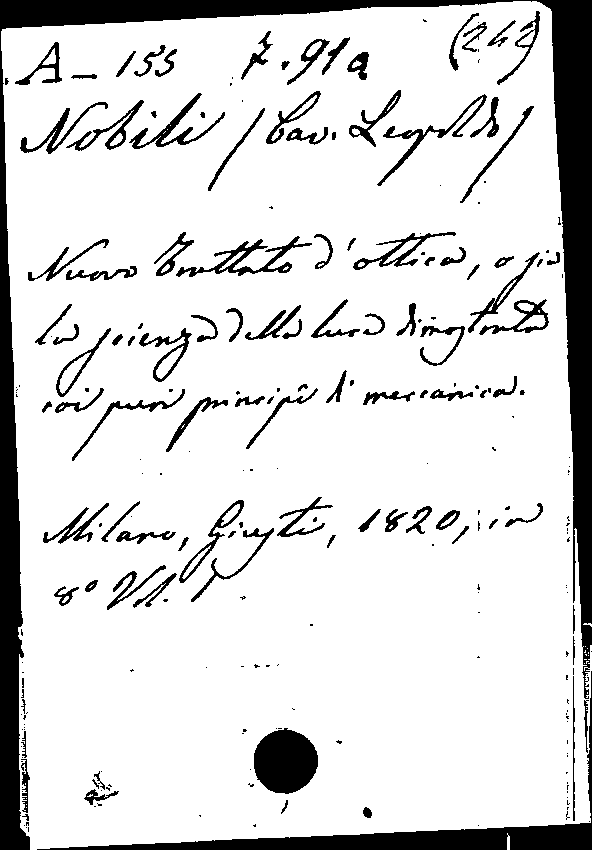 A - 155 7.91a (242)
Nobili / Cav. Leopoldo /
Nuovo Trattato d'ottica, o sia
la scienza della luce dimostrata
coi puri principî di meccanica.
Milano, Giusti, 1820, in
8º Vol. I